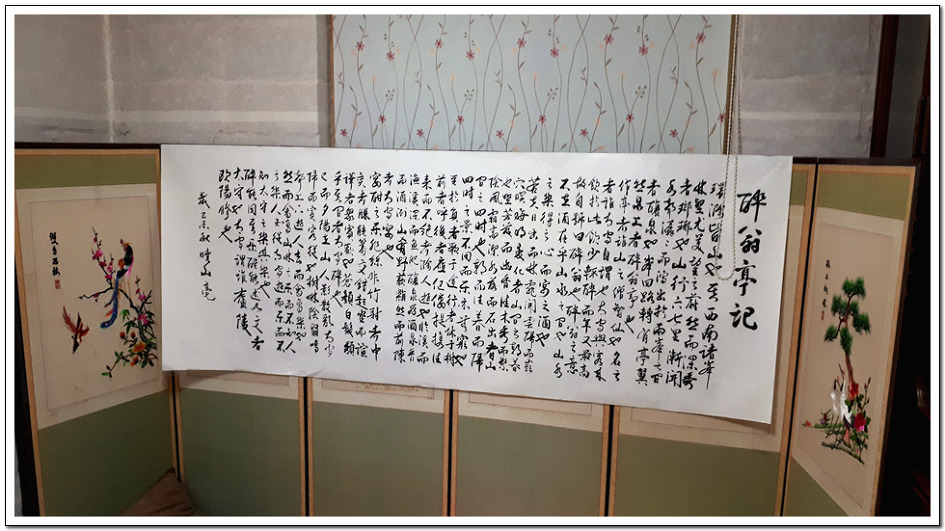 醉翁亭記
環滁皆山也其西南諸峯
林壑尤美望之蔚然而深秀
者瑯琊也山行六七里漸聞
水聲潺潺而瀉出於兩峯之間
者釀泉也峯回路轉有亭翼
然臨泉上者醉翁亭也
作亭者誰山之僧智仙也名之
者誰太守自謂也太守與客來
飮於此飮少輒醉而年又最高
故自號曰醉翁也醉翁之意
不在酒在乎山水之間也山水
之樂得之心而寓之酒也
若夫日出而林霏開雲歸而巖
穴暝晦明變化者山間之朝暮
也野芳發而幽香佳木秀而繁
陰風霜高潔水落而石出者山
間之四時也朝而往暮而歸
四時之景不同而樂亦無窮也
至於負者歌于途行者休于樹
前者呼後者應傴僂提携往
來而不絶者滁人遊也臨溪而
漁溪深而魚肥釀泉爲酒泉香
而酒洌山肴野蔌雜然而前陳
者太守宴也
宴酣之樂非絲非竹射者中
奕者勝觥籌交錯起坐而諠
譁者衆賓歡也蒼顔白髮頹
乎其間者太守醉也
已而夕陽在山人影散亂太守
歸而賓客從也樹林陰翳鳴
聲上下遊人去而禽鳥樂也
然而禽鳥知山林之樂而不知人
之樂人知從太守遊而樂而不
知太守之樂其樂也
醉能同其樂醒能述以文者
太守也太守謂誰廬陵
歐陽修也
歲己亥秋曉山